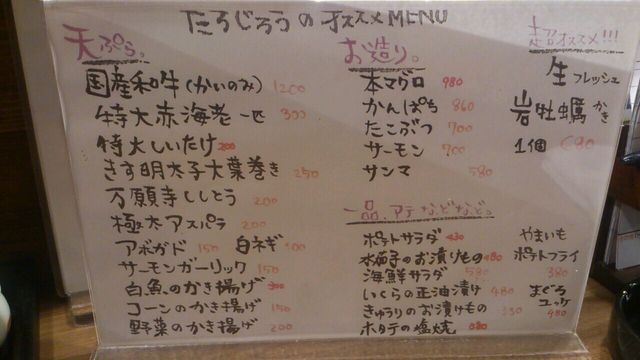 たろじろうのオススメMENU
天ぷら。
国産和牛(かいのみ) 1200
特大赤海老一匹 300
特大しいたけ 200
きす明太子大葉巻き 250
万願寺ししとう 200
極太アスパラ 200
アボガド 150 白ネギ 100
サーモンガーリック 150
白魚のかき揚げ 300
コーンのかき揚げ 150
野菜のかき揚げ 200
お造り。
本マグロ 980
かんぱち 860
たこぶつ 700
サーモン 700
サンマ 580
一品、アテなどなど。
ポテトサラダ 430
水茄子のお漬けもの 480
海鮮サラダ 580
いくらの正油漬け 480
きゅうりのお漬けもの 330
ホタテの塩焼
超オススメ!!!
生フレッシュ
岩牡蠣 かき
1個
やまいも
ポテトフライ
380
まぐろ
ユッケ
480